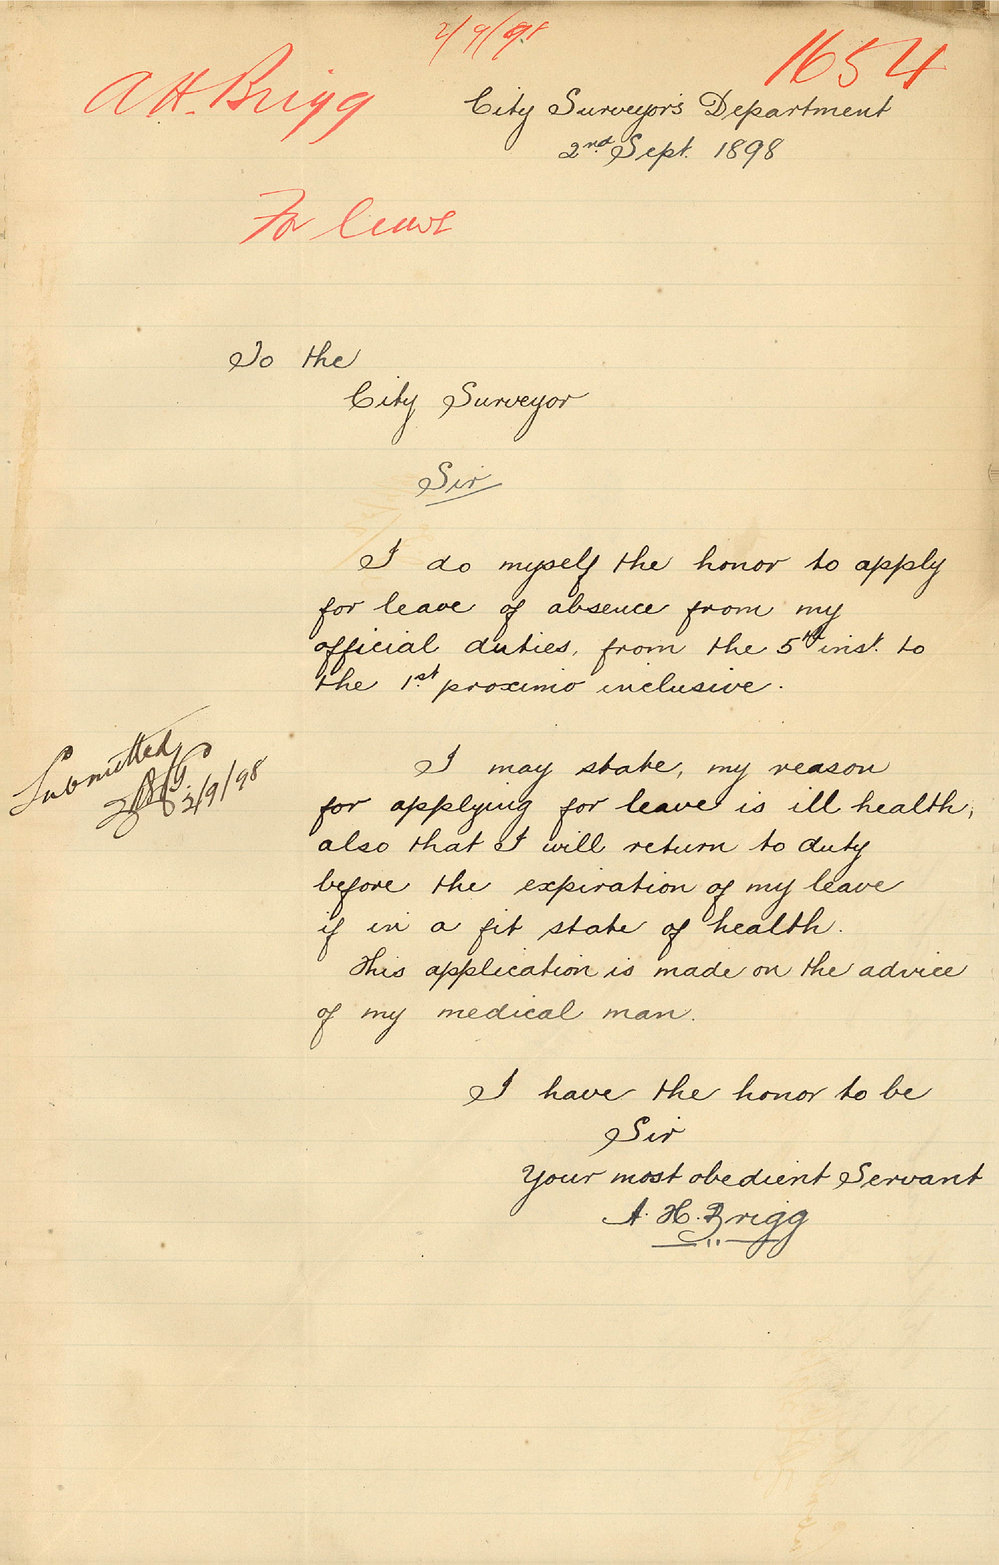 2/9/98
1654
A H. Brigg
City Surveyor's Department
2nd Sept. 1898
For leave
To the
City Surveyor
Sir
I do myself the honor to apply
for leave of absence from my
official duties, from the 5th inst. to
the 1st proximo inclusive.
Submitted
2/9/98
I may state, my reason
for applying for leave is ill health,
also that I will return to duty
before the expiration of my leave
if in a fit state of health.
This application is made on the advice
of my medical man.
I have the honor to be
Sir
Your most obedient Servant
A. H. Brigg